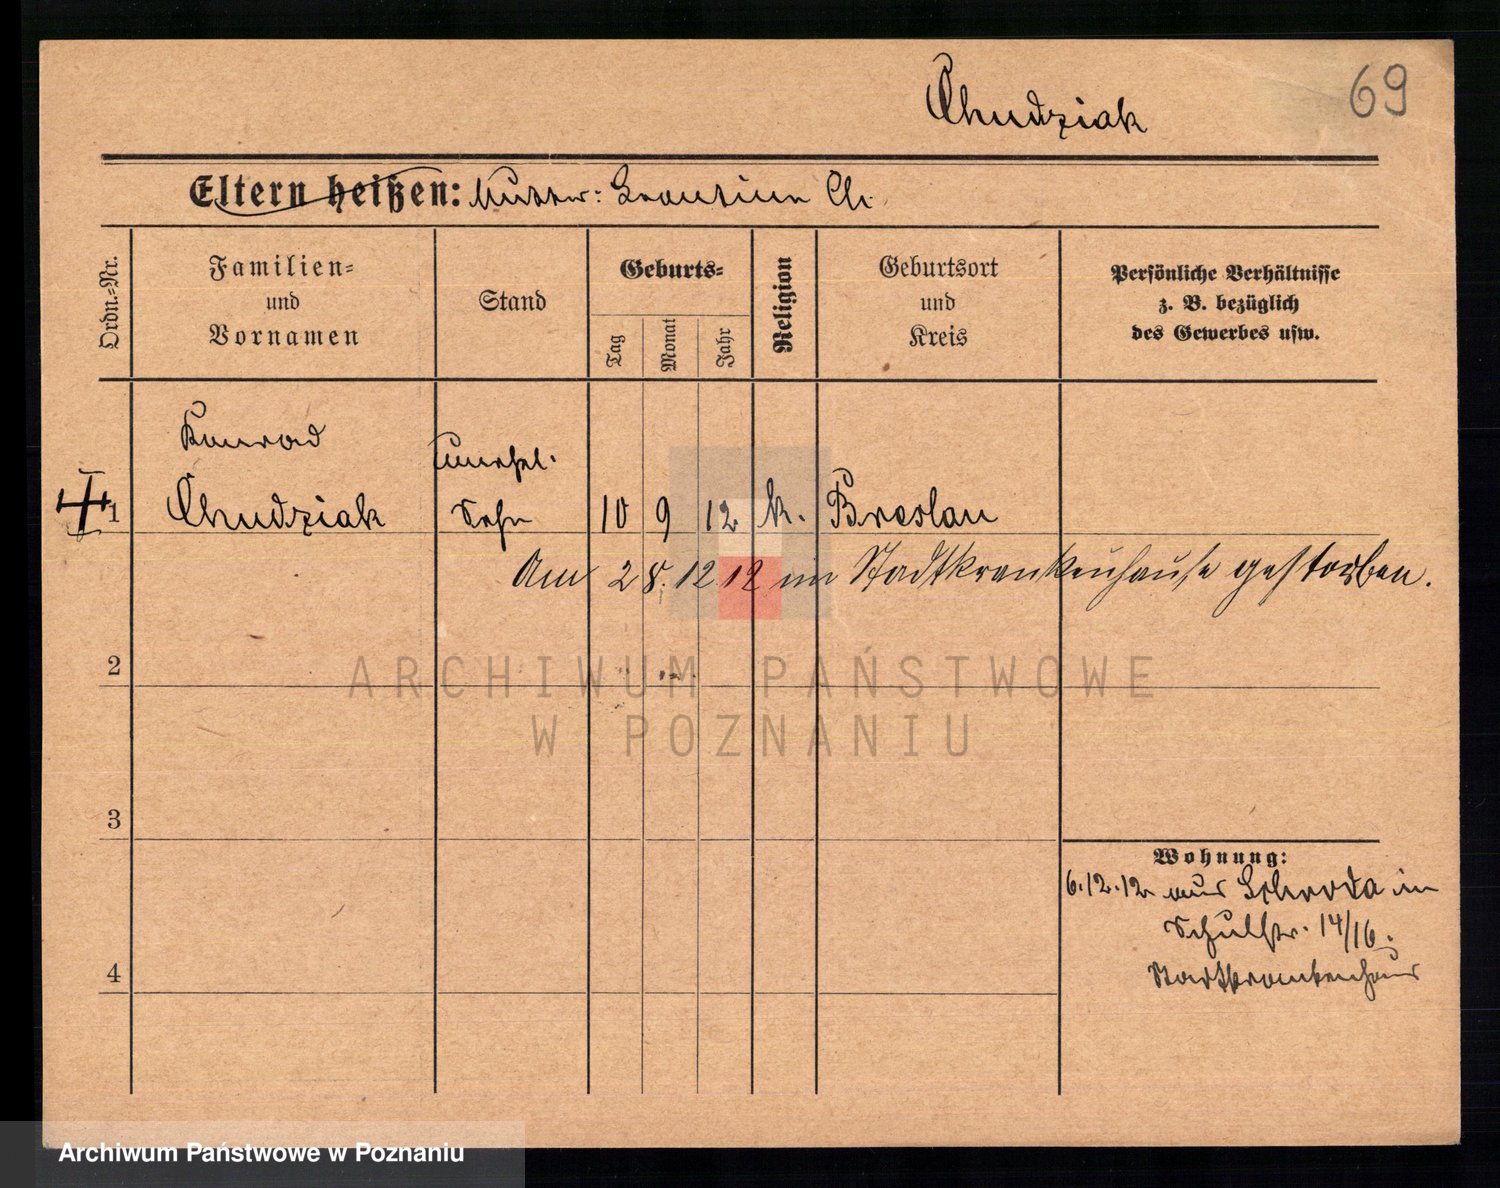 Chudziak
69
Eltern heißen: Mutter: Leontine Ch.
Ordn.-Nr.
Familien-
und
Vornamen
Stand
Geburts-
Tag
Monat
Jahr
Religion
Geburtsort
und
Kreis
Persönliche Verhältnisse
z. B. bezüglich
des Gewerbes usw.
Konrad
unehel.
1 Chudziak Sohn 10 9 12 k. Breslau
Am 28.12 12 im Stadtkrankenhause gestorben.
2
ARCHIWUM PAŃSTWOWE
W POZNANIU
3
Wohnung:
6.12.12 aus Schroda in
Schulstr. 14/16.
4
Stadtkrankenhaus
Archiwum Państwowe w Poznaniu